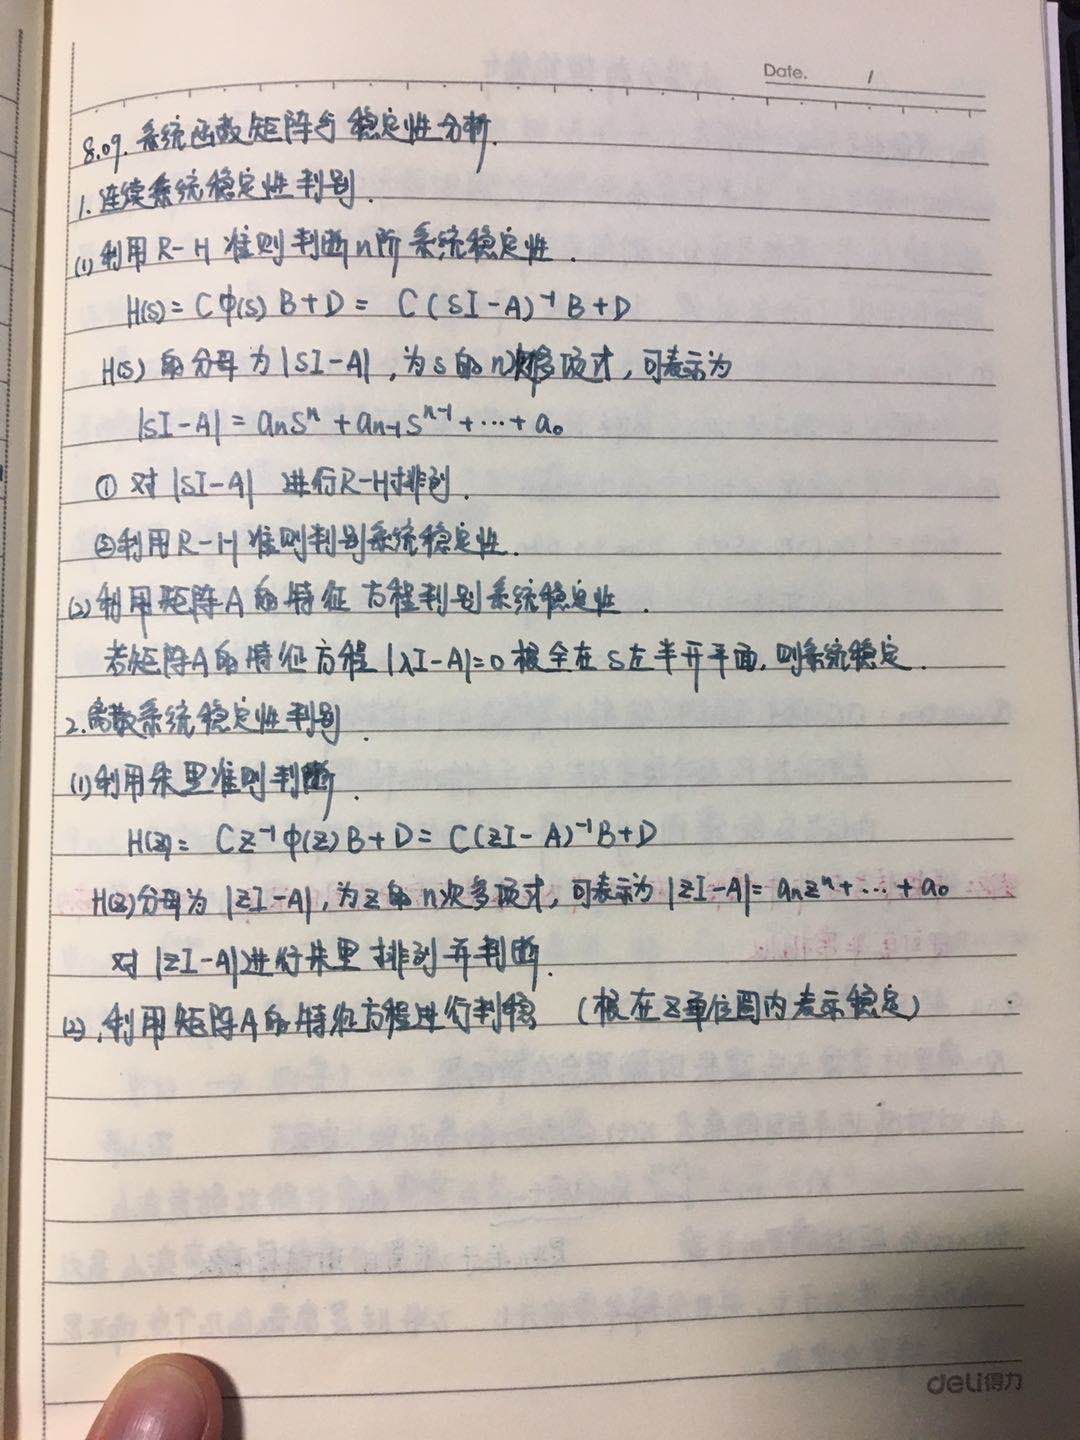 Date. 1
8.09. 系统函数矩阵与稳定性分析.
1. 连续系统稳定性判别.
(1) 利用R-H 准则判断n阶系统稳定性.
H(s) = Cφ(s) B+D = C (SI-A)⁻¹ B+D
H(s) 的分母为 |SI-A|, 为s的n次多项式, 可表示为
|SI-A| = aₙsⁿ + aₙ₋₁sⁿ⁻¹ + … + a₀
① 对 |SI-A| 进行R-H排列.
② 利用R-H 准则判别系统稳定性.
(2) 利用矩阵A的特征方程判别系统稳定性.
若矩阵A的特征方程 |λI-A|=0 根全在S左半开平面, 则系统稳定.
2. 离散系统稳定性判别.
(1) 利用朱里准则判断.
H(z) = Cz⁻¹φ(z)B+D = C(zI-A)⁻¹B+D
H(z)分母为 |zI-A|, 为z的n次多项式, 可表示为 |zI-A| = aₙzⁿ + … + a₀
对 |zI-A|进行朱里排列并判断.
(2). 利用矩阵A的特征方程进行判稳 (根在Z单位圆内表示稳定)
deli得力